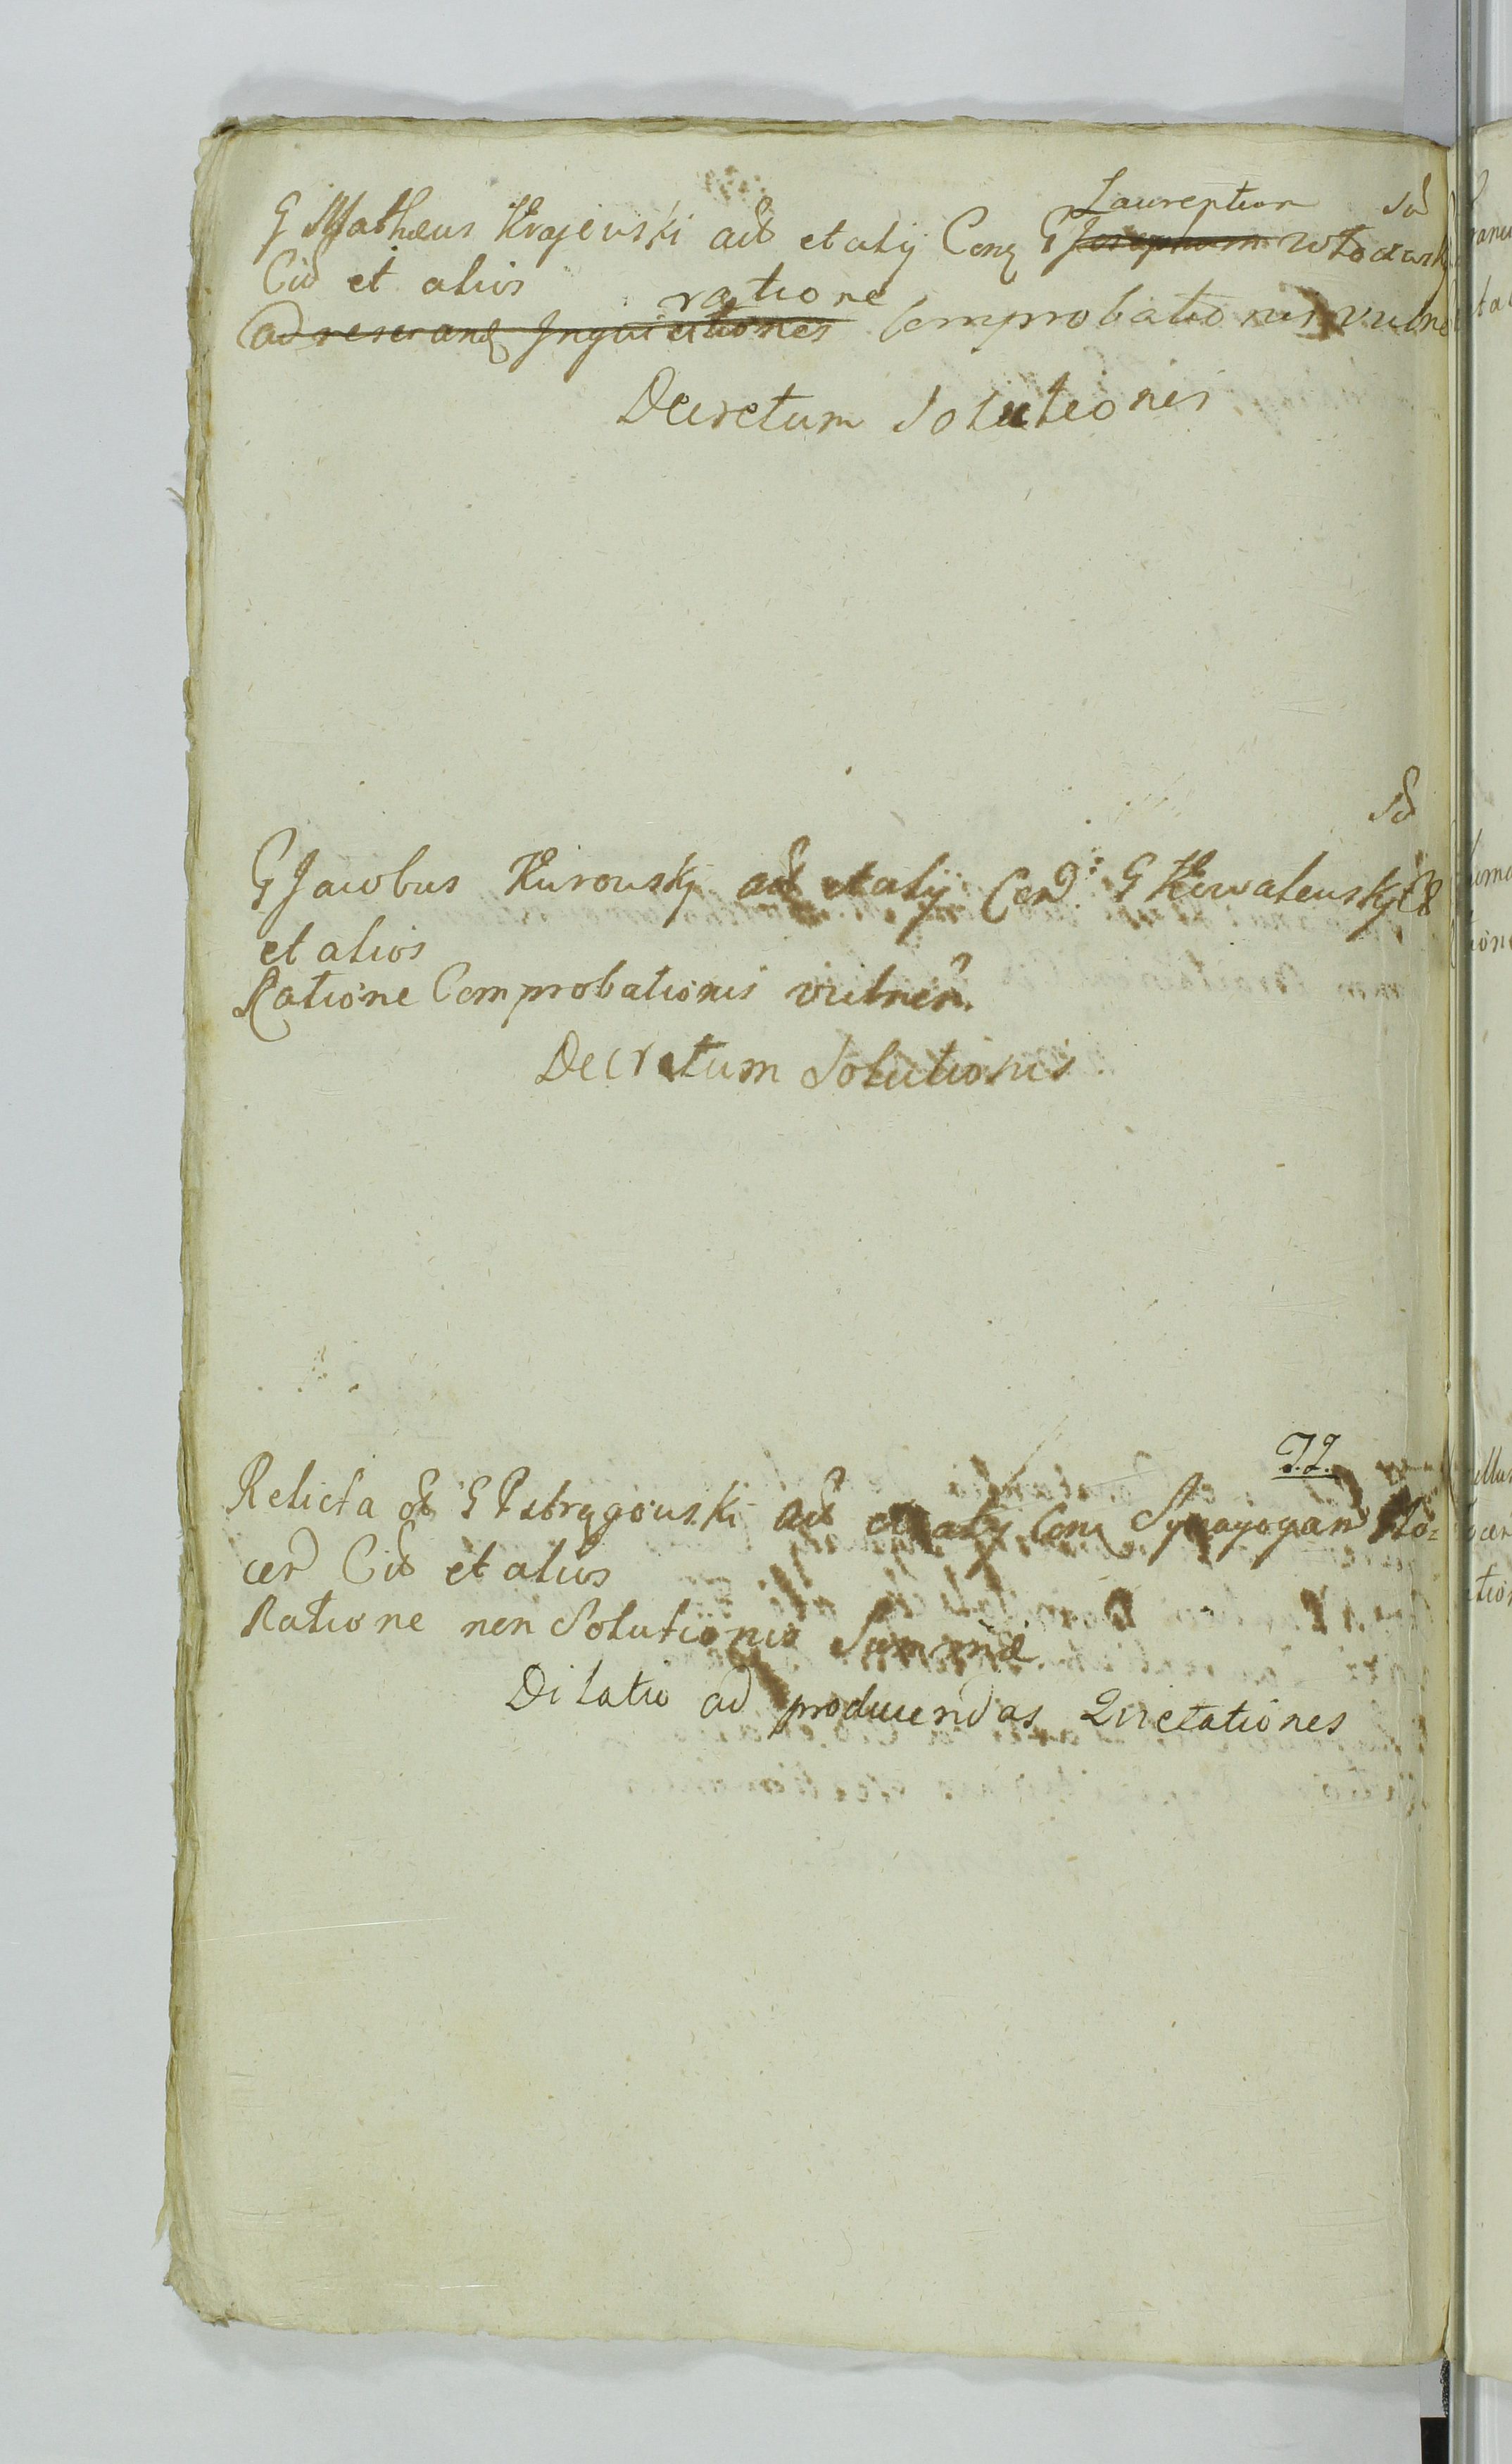 Laurentium Sd
G Matheus Krajewski act et alij Conq G Josephum Włodarski
Cit et alios
ratione
ad reserand Inquisitiones Comprobationis vulne
Decretum Solutionis
Sd
G Jacobus Kurowskj act et alij Cond: G Kowalewskj Cit
et alios
Ratione Comprobationis vulner
Decretum Solutionis
T.Z.
Relicta ol G Pstrągowski act et alij Conq Synagogam Plo=
cen Cit et alios
Ratione non Solutionis Summæ
Dilatio ad producendas Quietationes